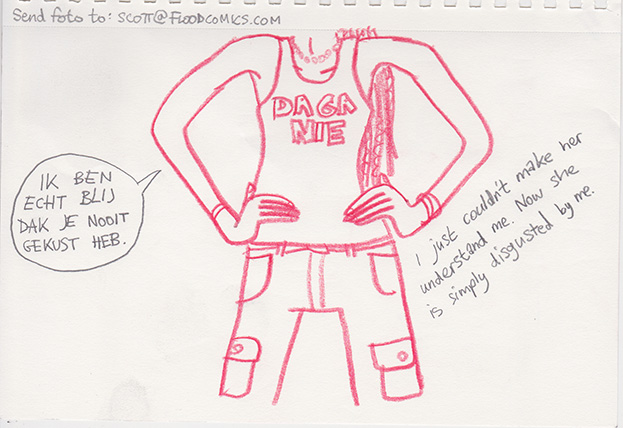 Send foto to: SCOTT@FLOODCOMICS.COM
DAGA
NIE
IK BEN
ECHT BLIJ
DAK JE NOOIT
GEKUST HEB.
I just couldn't make her
understand me. Now she
is simply disgusted by me.